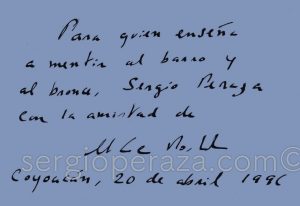 Para quien enseña
a mentir al barro y
al bronce, Sergio Peraza
con la amistad de
sergioperaza.com©
Coyoacán, 20 de abril 1996